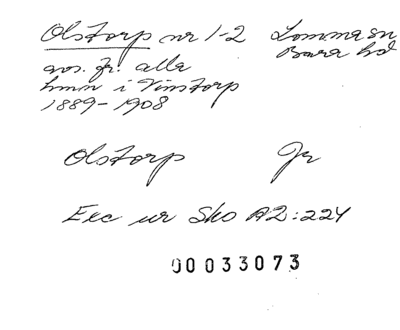 Olstorp nr 1-2 Lomma sn
Bara hd
avs. fr. alla
hmn i Vinstorp
1889-1908
Olstorp Jr
Exc ur Sko A2:224
00033073